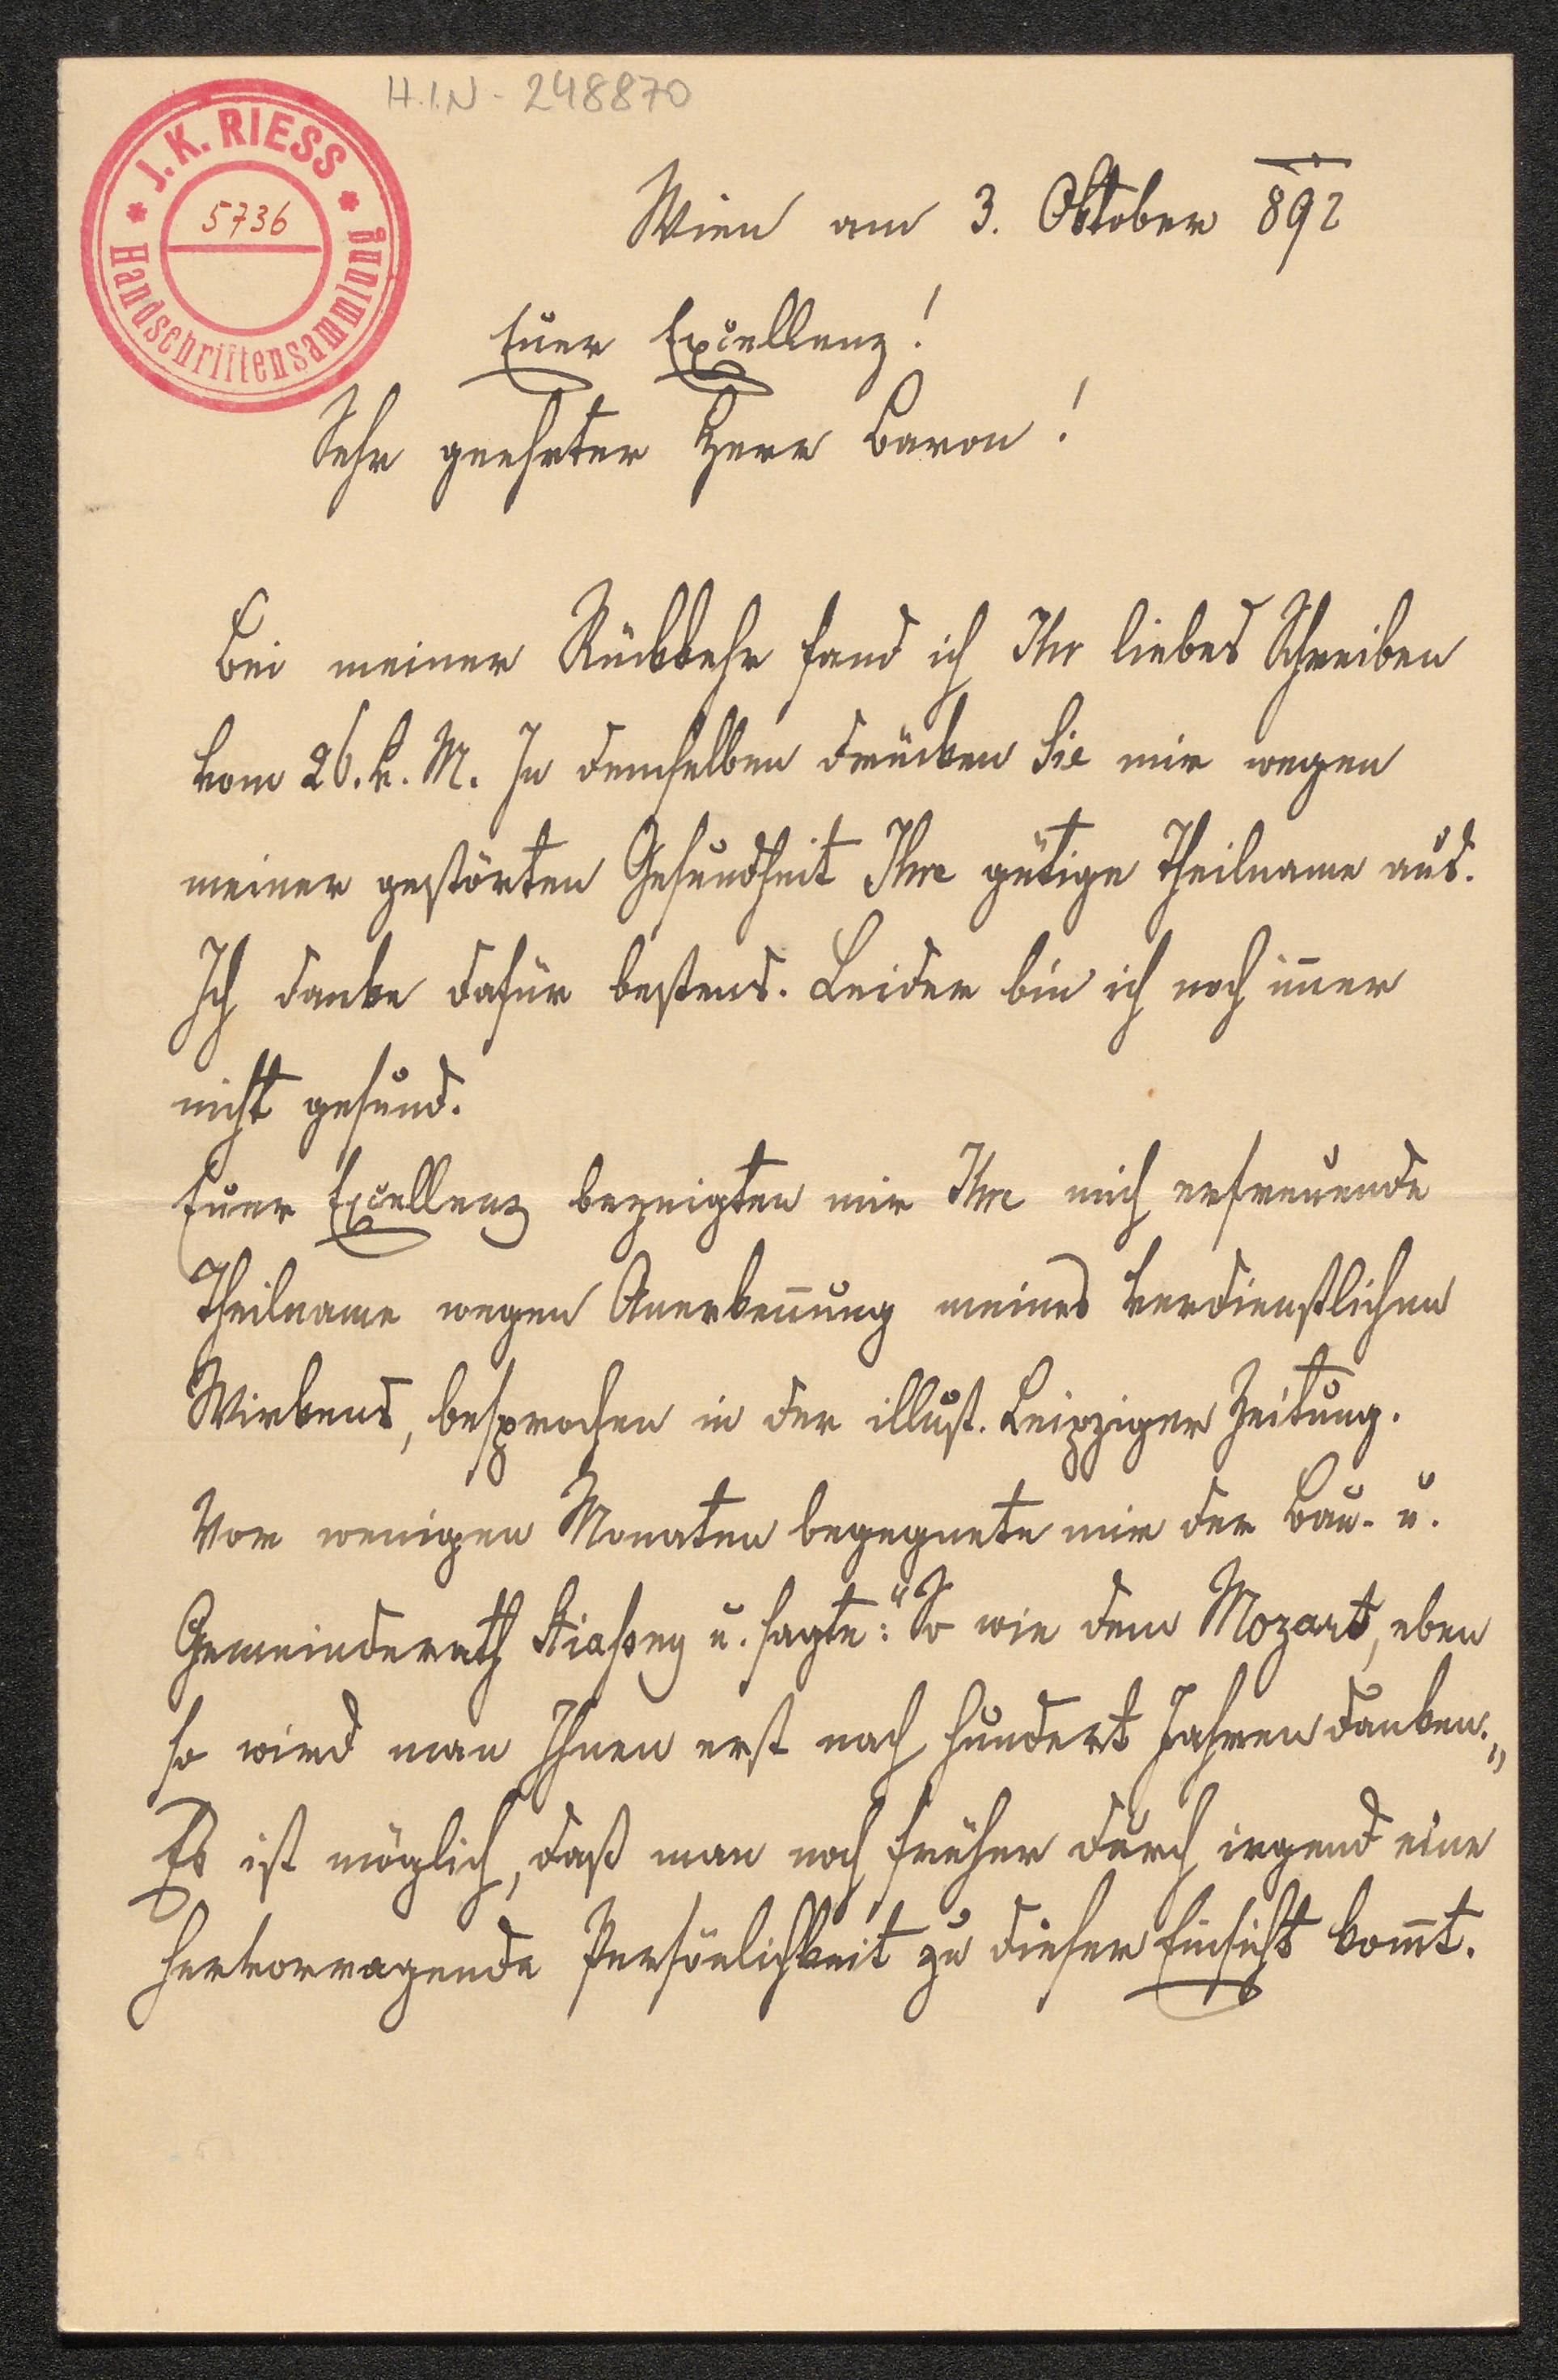 H.I.N - 248870
J. K. RIESS
5736
Handschriftensammlung
Wien am 3. Oktober 892
Euer Excellenz!
Sehr geehrter Herr Baron!
Bei meiner Rückkehr fand ich Ihr liebes Schreiben
vom 26. v. M. In demselben drücken Sie mir wegen
meiner gestörten Gesundheit Ihre gütige Theilname aus.
Ich danke dafür bestens. Leider bin ich noch im̄er
nicht gesund.
Euer Excellenz bezeigten mir Ihre mich erfreuende
Theilname wegen Anerken̄ung meines verdienstlichen
Wirkens, besprochen in der illust. Leipziger Zeitung.
Vor wenigen Monaten begegnete mir der Bau- u.
Gemeinderath Stiaßny u. sagte: "So wie dem Mozart, eben
so wird man Ihnen erst nach hundert Jahren danken."
Es ist möglich, daß man noch früher durch irgend eine
hervorragende Persönlichkeit zu dieser Einsicht kom̄t.